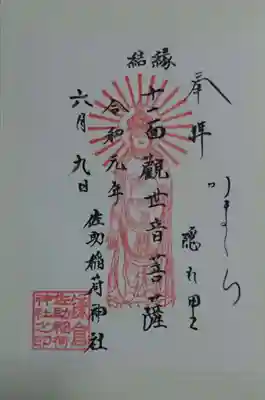 結縁
奉拝
隠れ里
十一面観世音菩薩
令和元年
六月九日
佐助稲荷神社
鎌倉
佐助稲荷
神社之印